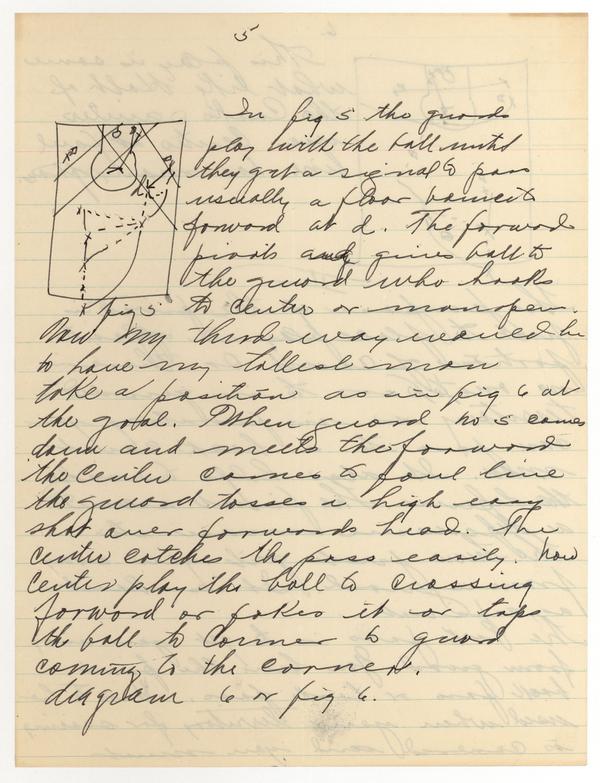 5
In fig 5 the guards
play with the ball until
they get a signal to pass
usually a floor bounce
forward at d. The forward
pivots and gives ball to
the guard who hooks
to center or man open.
fig 5
Now my third way would be
to have my tallest man
take a position as in fig 6 at
the goal. When guard no 5 comes
down and meets the forward
the center comes to foul line
the guard tosses a high easy
shot over forwards head. The
center catches the pass easily. now
center play the ball to crossing
forward or fakes it or taps
the ball to corner to guard
coming to the corner.
diagram 6 or fig 6.